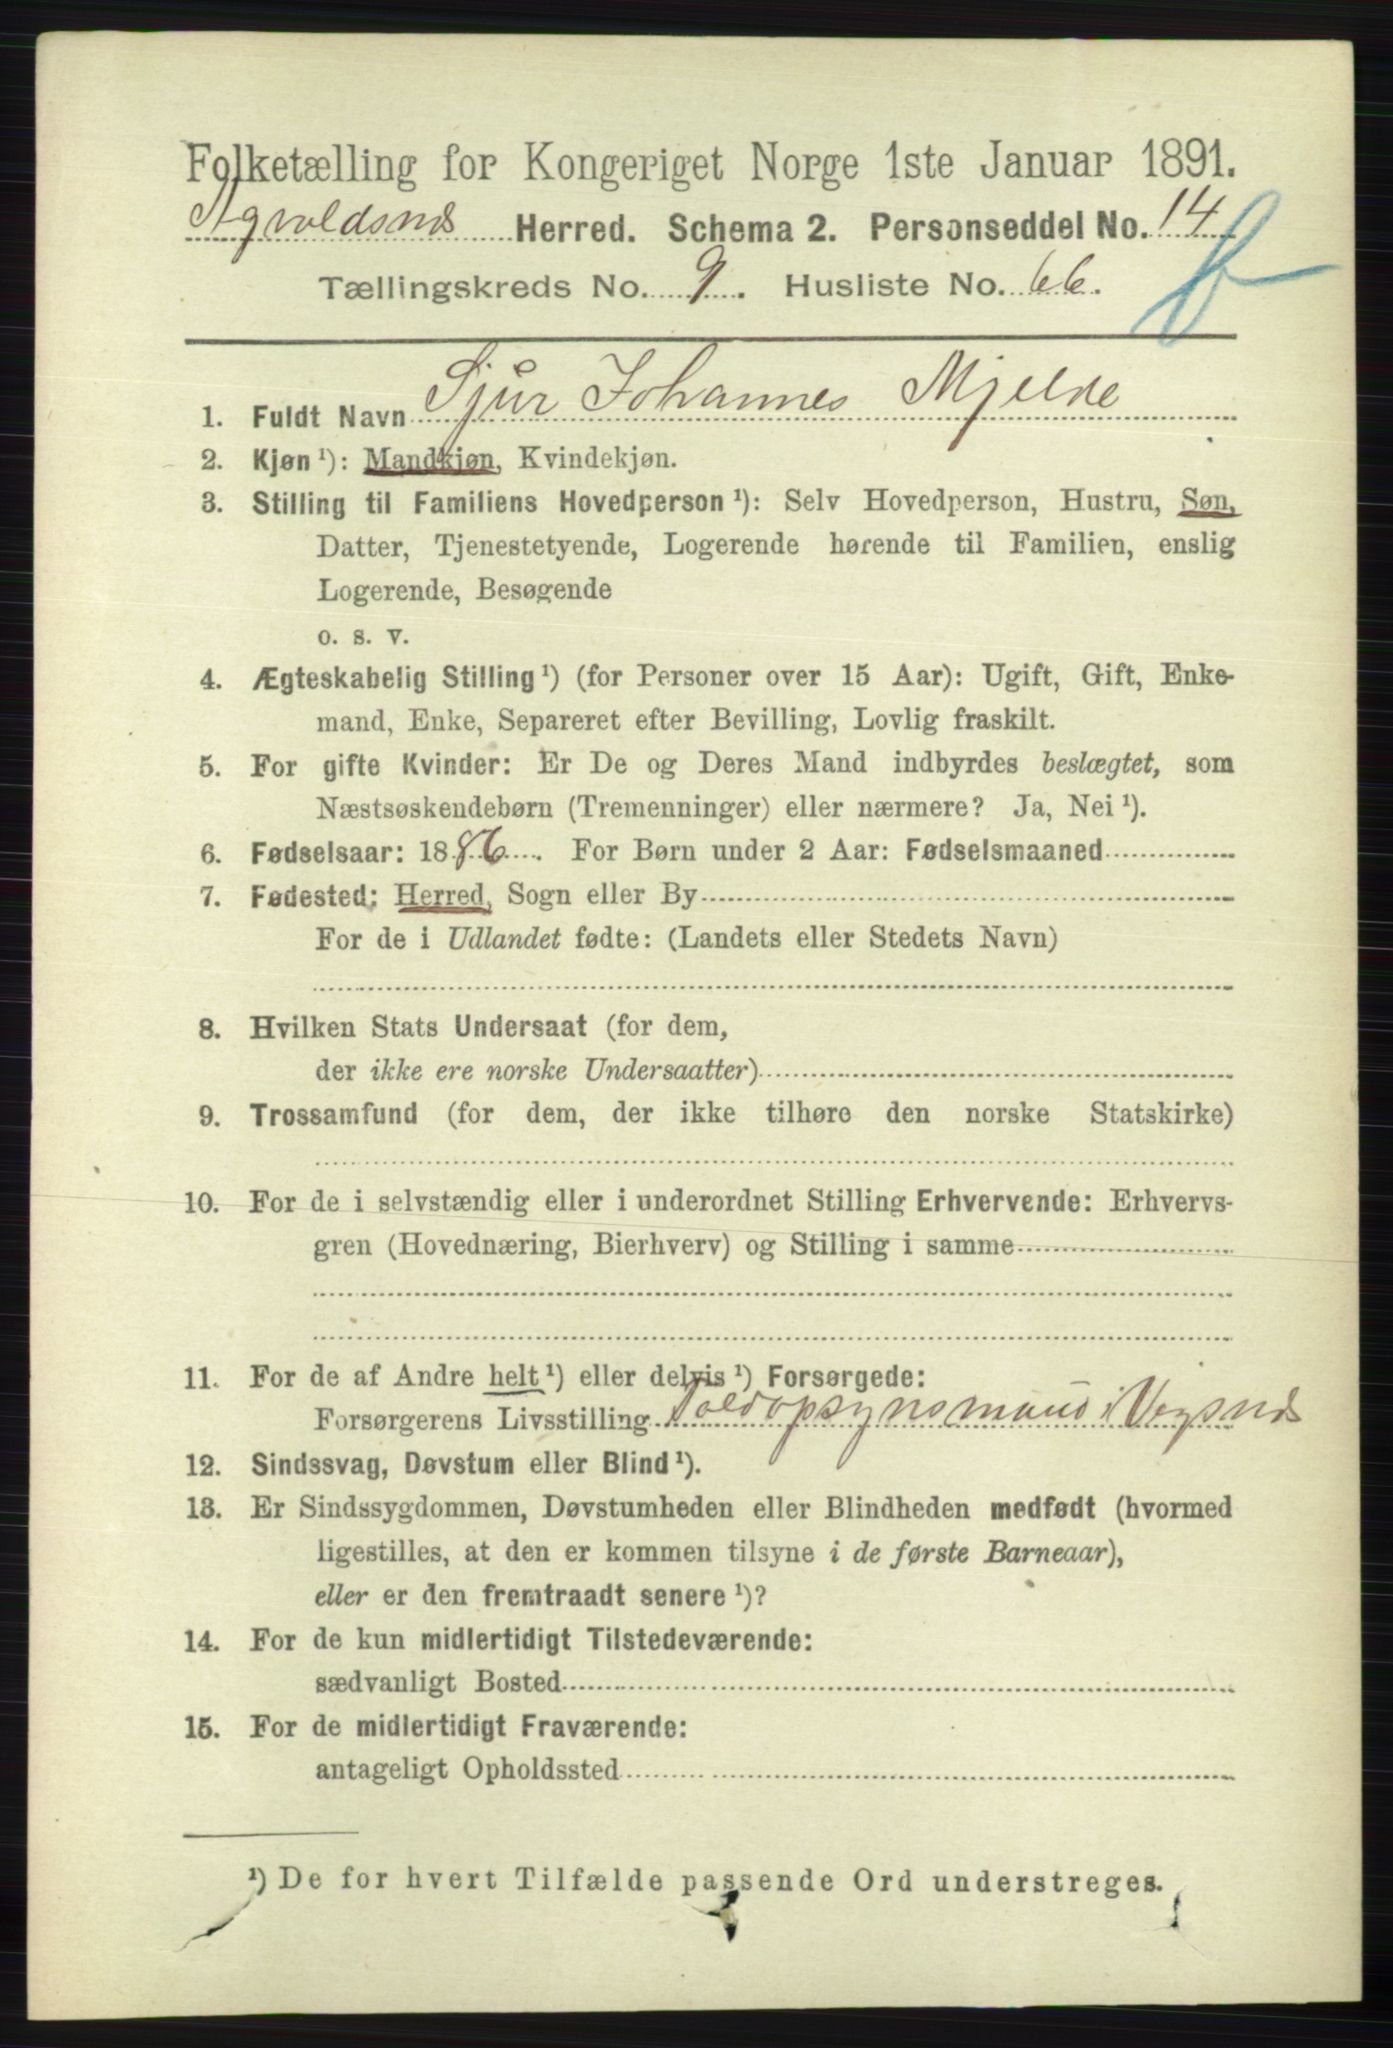 Folketælling for Kongeriget Norge 1ste Januar 1891.
Agvaldsnes Herred. Schema 2. Personseddel No. 14
Tællingskreds No. 9. Husliste No. 66.
1. Fuldt Navn Sjur Johannes Mjelde
2. Kjøn ¹): Mandkjøn, Kvindekjøn.
3. Stilling til Familiens Hovedperson ¹): Selv Hovedperson, Hustru, Søn,
Datter, Tjenestetyende, Logerende hørende til Familien, enslig
Logerende, Besøgende
o. s. v.
4. Ægteskabelig Stilling ¹) (for Personer over 15 Aar): Ugift, Gift, Enke-
mand, Enke, Separeret efter Bevilling, Lovlig fraskilt.
5. For gifte Kvinder: Er De og Deres Mand indbyrdes beslægtet, som
Næstsøskendebørn (Tremenninger) eller nærmere? Ja, Nei ¹).
6. Fødselsaar: 1886. For Børn under 2 Aar: Fødselsmaaned
7. Fødested: Herred, Sogn eller By
For de i Udlandet fødte: (Landets eller Stedets Navn)
8. Hvilken Stats Undersaat (for dem,
der ikke ere norske Undersaatter)
9. Trossamfund (for dem, der ikke tilhøre den norske Statskirke)
10. For de i selvstændig eller i underordnet Stilling Erhvervende: Erhvervs-
gren (Hovednæring, Bierhverv) og Stilling i samme
11. For de af Andre helt ¹) eller delvis ¹) Forsørgede:
Forsørgerens Livsstilling Toldopsynsmand i
12. Sindssvag, Døvstum eller Blind ¹).
13. Er Sindssygdommen, Døvstumheden eller Blindheden medfødt (hvormed
ligestilles, at den er kommen tilsyne i de første Barneaar),
eller er den fremtraadt senere ¹)?
14. For de kun midlertidigt Tilstedeværende:
sædvanligt Bosted
15. For de midlertidigt Fraværende:
antageligt Opholdssted
¹) De for hvert Tilfælde passende Ord understreges.